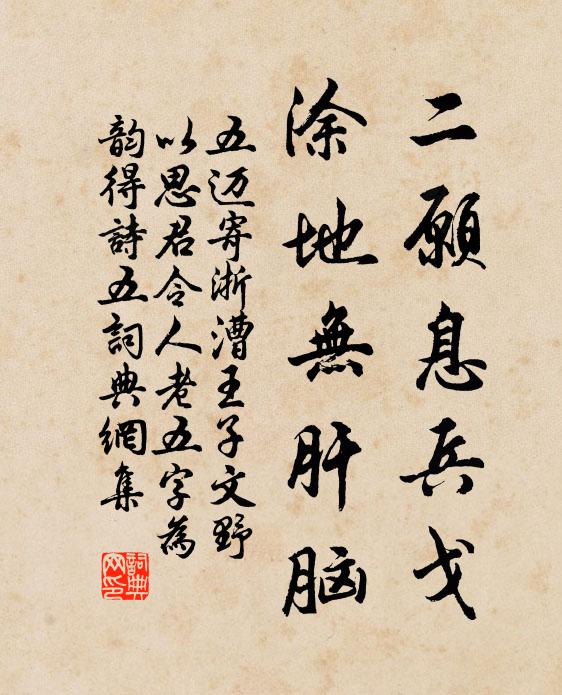 二願息兵戈
涂地無肝脑
五迈寄浙漕王子文野
以思君令人老五字為
韵得詩五詞典網集
詞典网印